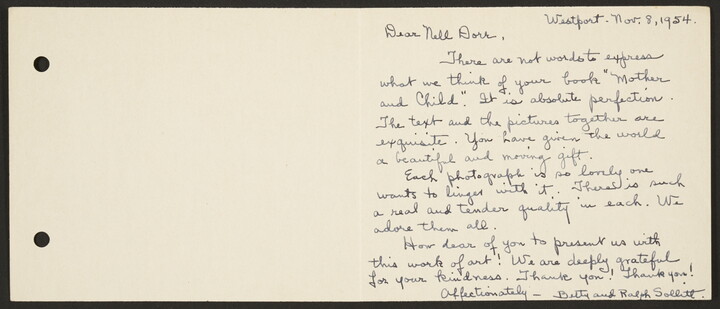 Westport. Nov. 8, 1954.
Dear Nell Dorr,
There are not words to express
what we think of your book "Mother
and Child". It is absolute perfection.
The text and the pictures together are
exquisite. You have given the world
a beautiful and moving gift.
Each photograph is so lovely one
wants to linger with it. There is such
a real and tender quality in each. We
adore them all.
How dear of you to present us with
this work of art! We are deeply grateful
for your kindness. Thank you! Thank you!
Affectionately - Betty and Ralph Sollitt.